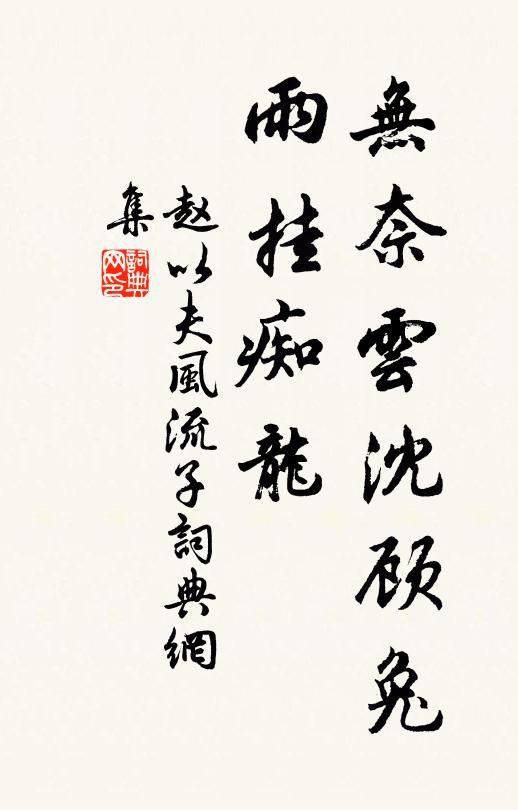 無奈雲沈顾兔
雨挂痴龍
赵以夫風流子詞典網
集
詞典
网印